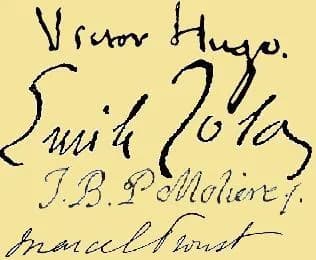 Victor Hugo.
Emile Zola
J. B. P Moliere
Marcel Proust